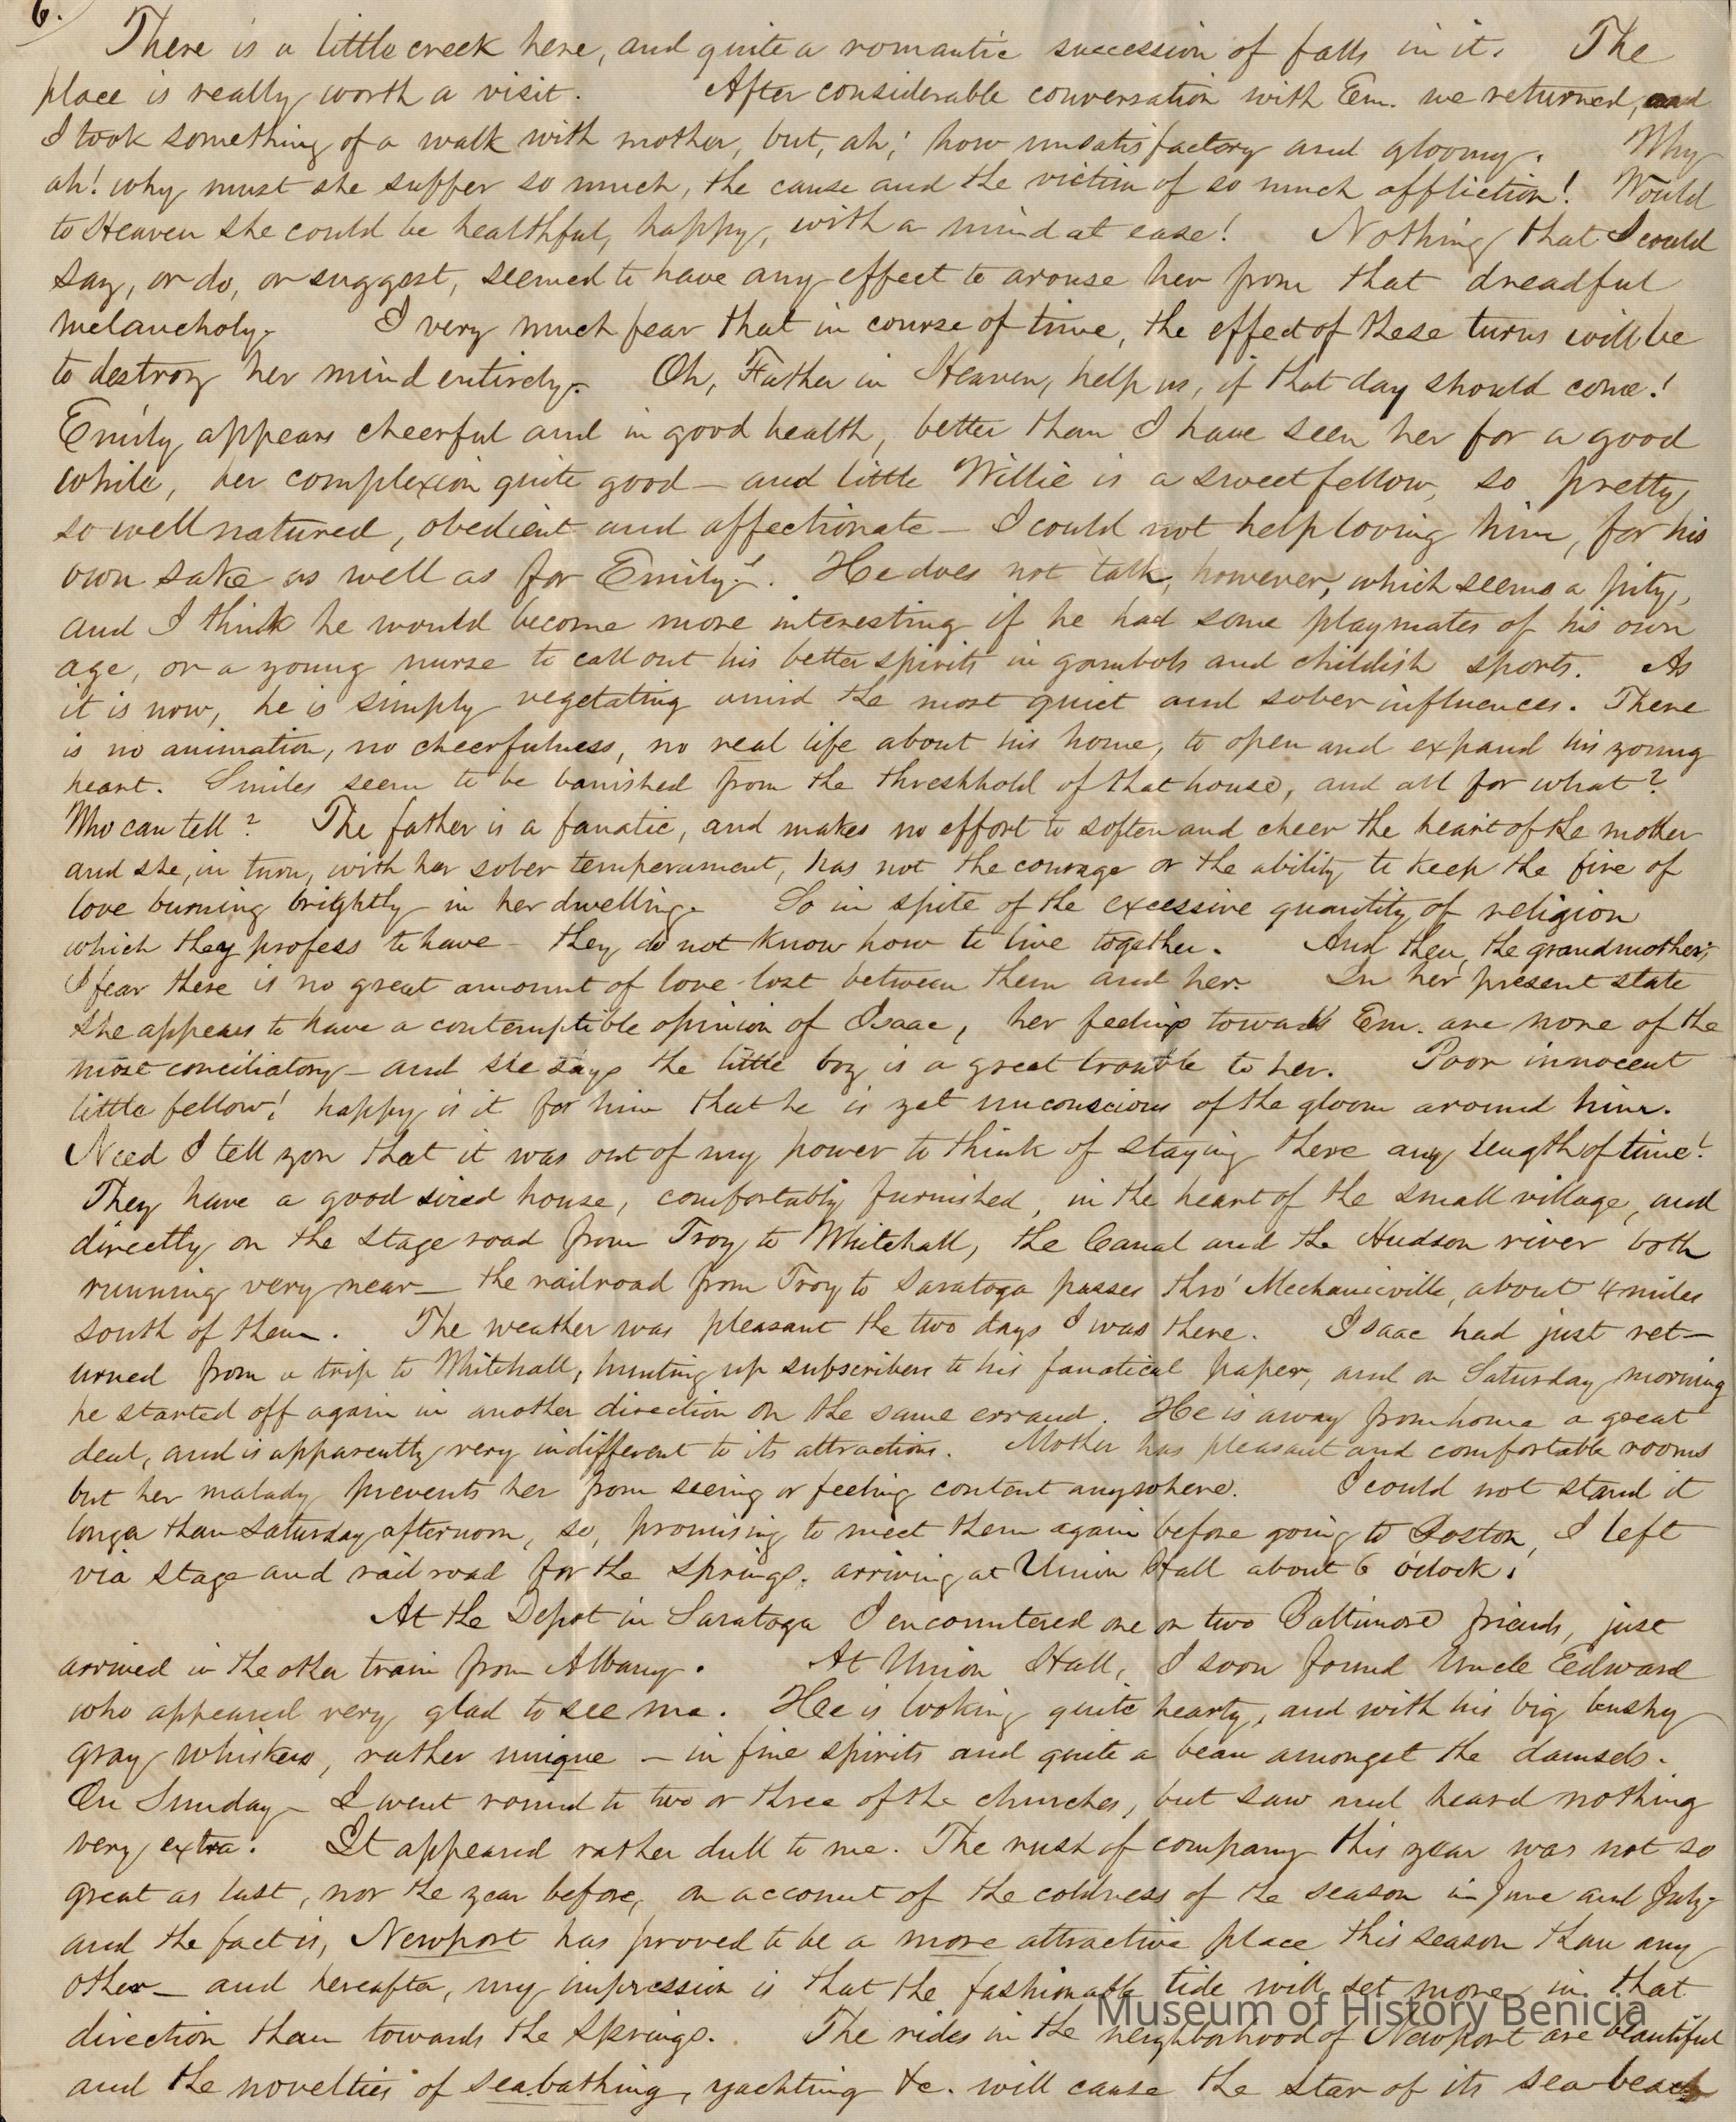 6.
There is a little creek here, and quite a romantic succession of falls in it. The
place is really worth a visit. After considerable conversation with Em. we returned, and
I took something of a walk with mother, but, ah! how unsatisfactory and gloomy. Why
ah! why must she suffer so much, the cause and the victim of so much affliction! Would
to Heaven she could be healthful, happy, with a mind at ease! Nothing that I could
say, or do, or suggest, seemed to have any effect to arouse her from that dreadful
melancholy. I very much fear that in course of time, the effect of these turns will be
to destroy her mind entirely. Oh, Father in Heaven, help us, if that day should come!
Emily appears cheerful and in good health, better than I have seen her for a good
while, her complexion quite good — and little Willie is a sweet fellow, so pretty,
so well natured, obedient and affectionate — I could not help loving him, for his
own sake as well as for Emily's. He does not talk, however, which seems a pity,
and I think he would become more interesting if he had some playmates of his own
age, or a young nurse to call out his better spirits in gambols and childish sports. As
it is now, he is simply vegetating amid the most quiet and sober influences. There
is no animation, no cheerfulness, no real life about his home, to open and expand his young
heart. Smiles seem to be banished from the threshhold of that house, and all for what?
Who can tell? The father is a fanatic, and makes no effort to soften and cheer the heart of the mother
and she, in turn, with her sober temperament, has not the courage or the ability to keep the fire of
love burning brightly in her dwelling. So in spite of the excessive quantity of religion
which they profess to have — they do not know how to live together. And then, the grandmother;
I fear there is no great amount of love lost between them and her. In her present state
she appears to have a contemptible opinion of Isaac, her feelings towards Em. are none of the
most conciliatory — and she says the little boy is a great trouble to her. Poor innocent
little fellow! happy is it for him that he is yet unconscious of the gloom around him.
Need I tell you that it was out of my power to think of staying there any length of time!
They have a good sized house, comfortably furnished, in the heart of the small village, and
directly on the stage road from Troy to Whitehall, the Canal and the Hudson river both
running very near — the railroad from Troy to Saratoga passes thro' Mechanicville, about 4 miles
south of them. The weather was pleasant the two days I was there. Isaac had just ret-
urned from a trip to Whitehall, hunting up subscribers to his fanatical paper, and on Saturday morning
he started off again in another direction on the same errand. He is away from home a great
deal, and is apparently very indifferent to its attractions. Mother has pleasant and comfortable rooms
but her malady prevents her from seeing or feeling content anywhere. I could not stand it
longer than Saturday afternoon, so, promising to meet them again before going to Boston, I left
via stage and rail road for the springs, arriving at Union Hall about 6 o'clock!
At the Depot in Saratoga I encountered one or two Baltimore friends, just
arrived in the other train from Albany. At Union Hall, I soon found Uncle Eedward
who appeared very glad to see me. Hee is looking quite hearty, and with his big bushy
gray whiskers, rather unique — in fine spirits and quite a beau amongst the damsels.
On Sunday I went round to two or three of the churches, but saw and heard nothing
very extra. It appeared rather dull to me. The rush of company this year was not so
great as last, nor the year before, on account of the coldness of the season in June and July
and the fact is, Newport has proved to be a more attractive place this season than any
other — and hereafter, my impression is that the fashionable tide will set more in that
direction than towards the springs. The rides in the neighborhood of Newport are beautiful
and the novelties of seabathing, yachting &c. will cause the star of its sea-beach
Museum of History Benicia